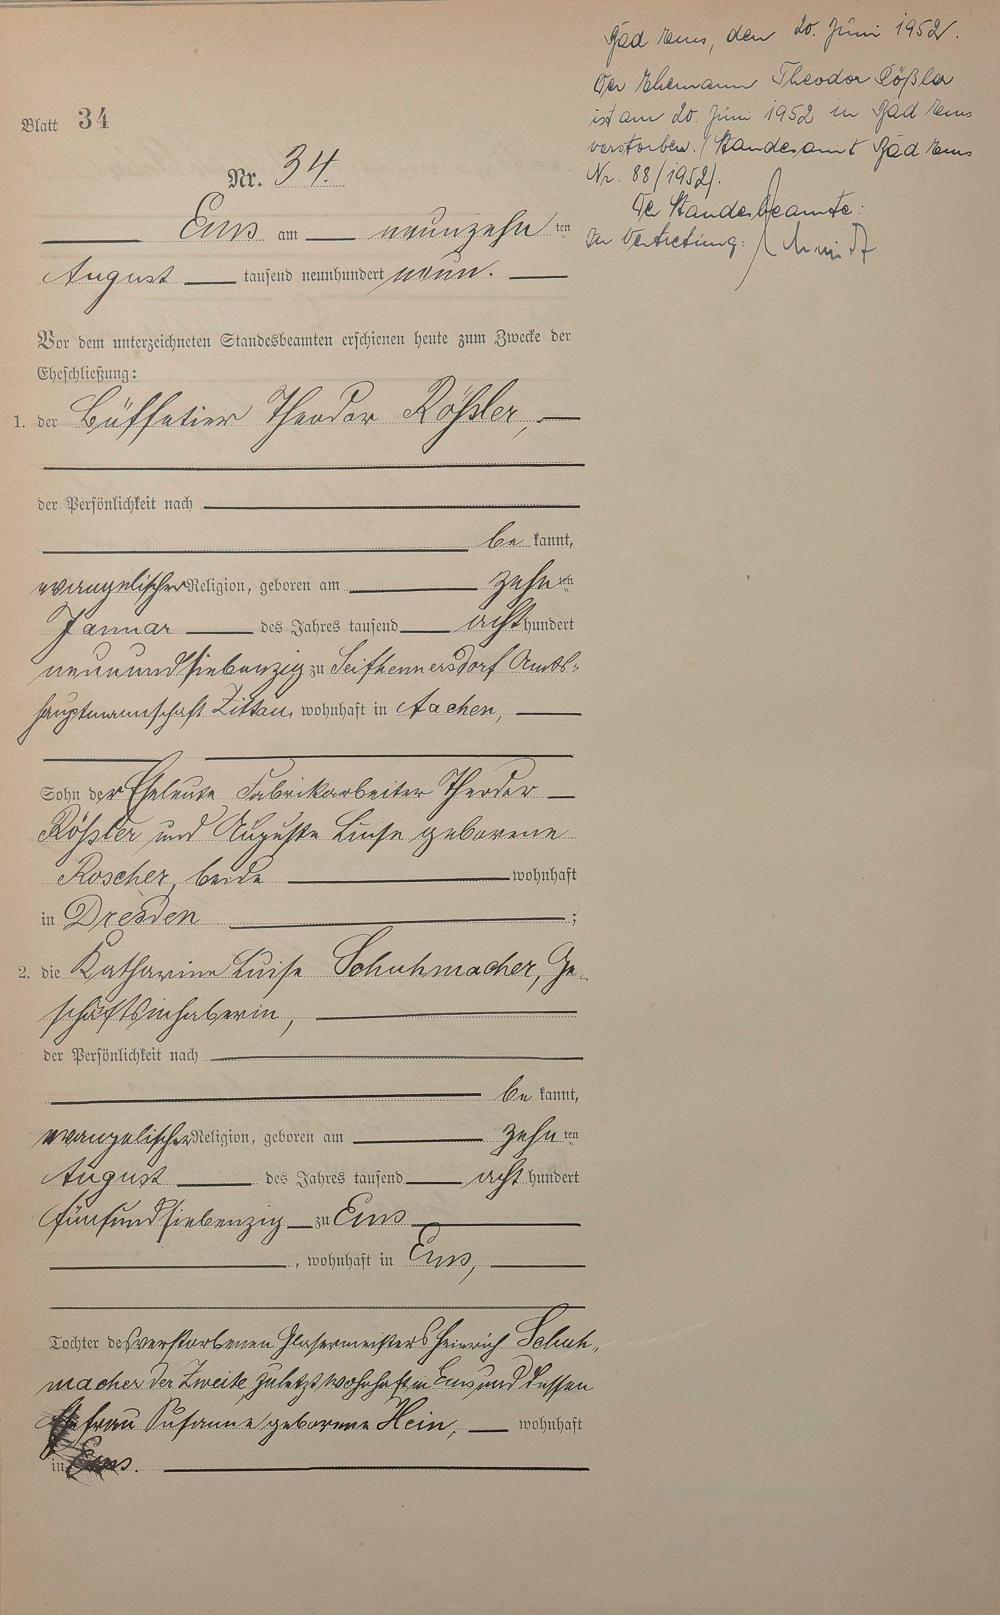 Bad Ems, den 20. Juni 1952.
Der Ehemann Theodor Rößler
ist am 20. Juni 1952 in Bad Ems
verstorben. (Standesamt Bad Ems
Nr. 88/1952).
Der Standesbeamte:
In Vertretung: Schmidt
Blatt 34
Nr. 34.
Ems am neunzehn ten
August tausend neunhundert neun.
Vor dem unterzeichneten Standesbeamten erschienen heute zum Zwecke der
Eheschließung:
1. der Büffetier Theodor Rößler,
der Persönlichkeit nach
be kannt,
evangelischer Religion, geboren am zehn ten
Januar des Jahres tausend acht hundert
neunundsiebenzig zu Seifhennersdorf Amts-
hauptmannschaft Zittau, wohnhaft in Aachen,
Sohn der Eheleute Fabrikarbeiter Theodor
Rößler und Auguste Luise geborene
Roscher, beide wohnhaft
in Dresden ;
2. die Katharine Luise Schuhmacher, Ge-
schäftsinhaberin,
der Persönlichkeit nach
be kannt,
evangelischer Religion, geboren am zehn ten
August des Jahres tausend acht hundert
fünfundsiebenzig zu Ems
, wohnhaft in Ems,
Tochter des verstorbenen Glasermeisters Heinrich Schuh-
macher der Zweite, zuletzt wohnhaft in Ems und dessen
Ehefrau Susanne geborene Hein, wohnhaft
in Ems.